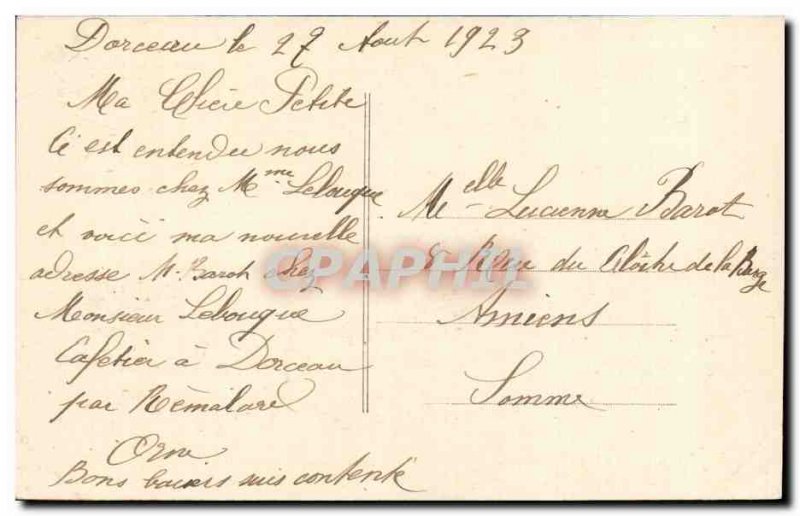 Dorceau le 27 Aout 1923
Ma Chère Petite
C'est entendu nous
sommes chez Mme Lebougue
et voici ma nouvelle
adresse M. Barot chez
Monsieur Lebougue
Cafetier à Dorceau
par Rémalard
Orne
Bons baisers suis contente
Melle Lucienne Barot
8 Rue du Cloître de la Barge
Amiens
Somme
CPAPHIL